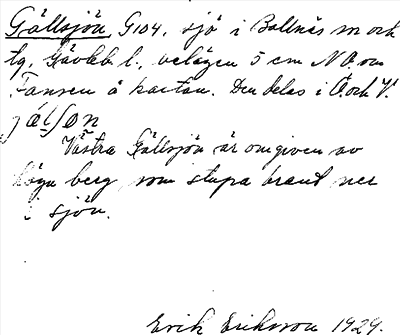 Gällsjön, G104, sjö i Bollnäs sn och
tg, Gävlebl., belägen 5 cm NO. om
å kartan. Den delas i Ö. och V.
Västra Gällsjön är omgiven av
höga berg, som stupa brant ner
i sjön.
Erik Eriksson 1929.